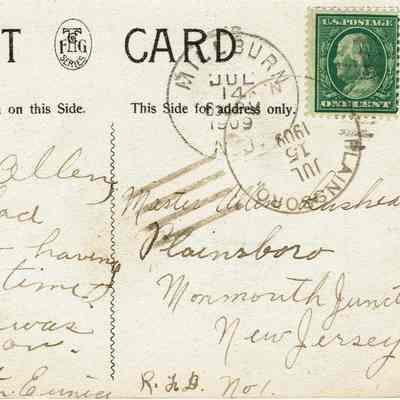 T CARD
T F G
SERIES
on this Side. This Side for address only.
MILLBURN
JUL
14
1909
N.J.
U.S. POSTAGE
ONE CENT
PLAINSBORO
JUL
15
1909
Allen
Master Allen
Plainsboro
having
Monmouth Junct
time
New Jersey
was
Eunice
R.F.D. No 1.